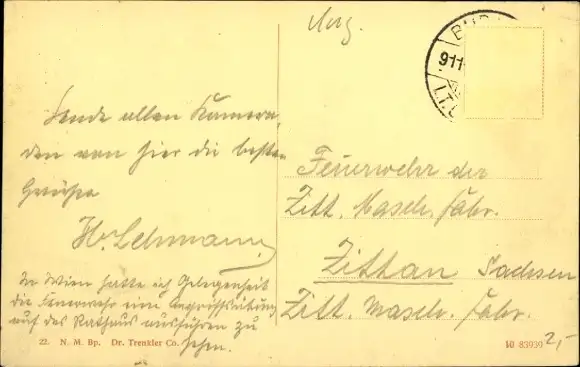 Sende allen Kamera-
den von hier die besten
Grüße
H. Lehmann.
In Wien hatte ich Gelegenheit
die Feuerwehr eine Angriffsübung
auf das Rathaus ausführen zu
sehen.
22. N. M. Bp. Dr. Trenkler Co.
BUD
911
I.T.
Feuerwehr der
Zitt. Masch. Fabr.
Zittau Sachsen
Zitt. Masch. Fabr.
10 83939
2,-